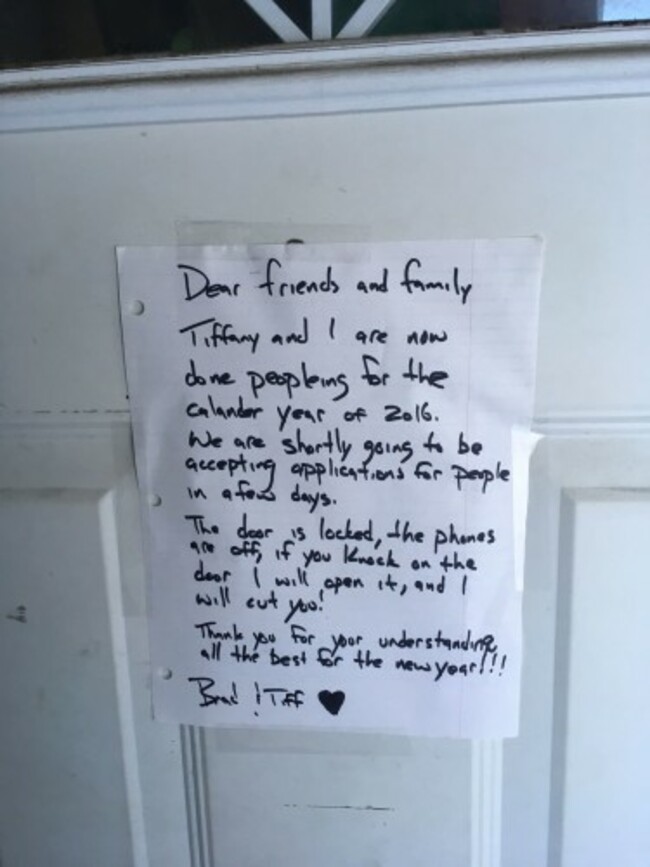 Dear friends and family
Tiffany and I are now
done peopleing for the
calander year of 2016.
We are shortly going to be
accepting applications for people
in a few days.
The door is locked, the phones
are off, if you knock on the
door I will open it, and I
will cut you!
Thank you for your understanding,
all the best for the new year!!!
Brad & Tiff ♥